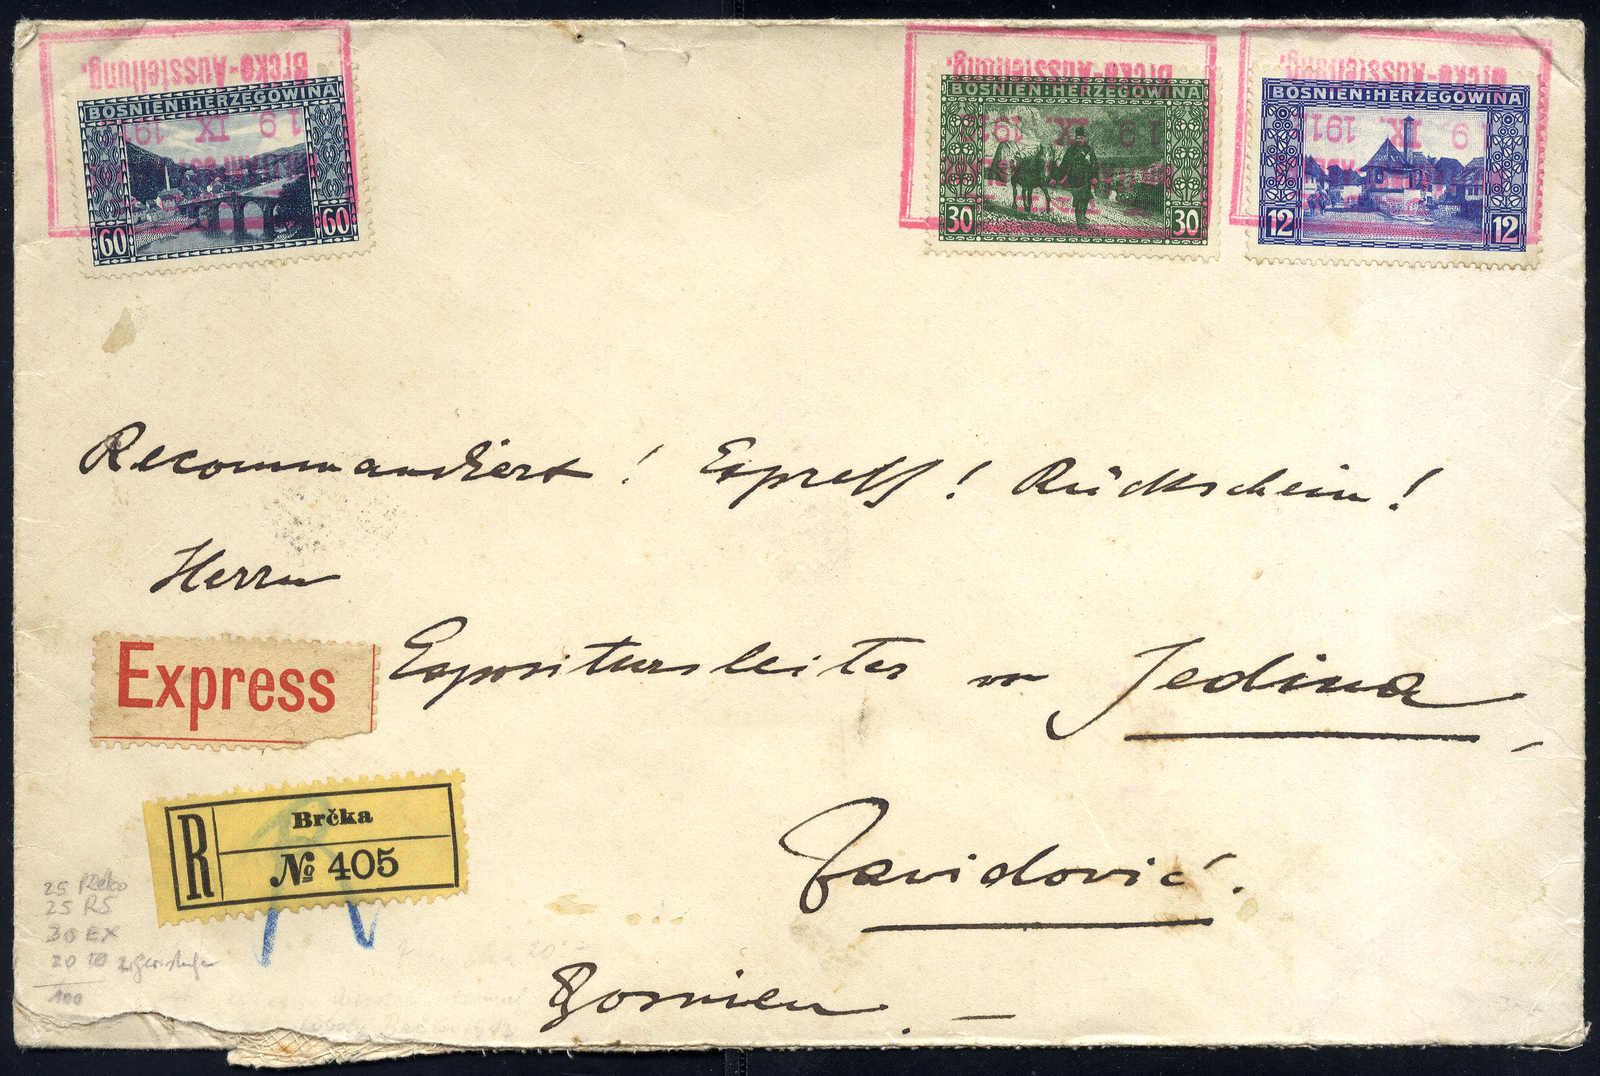 Brcko-Ausstellung.
19 IX. 191
BOSNIEN:HERZEGOWINA
60 60
Brcko-Ausstellung.
19 IX. 191
BOSNIEN:HERZEGOWINA
30 30
Brcko-Ausstellung.
19 IX. 191
BOSNIEN:HERZEGOWINA
12 12
Recommandiert! Expreß! Rückschein!
Herrn
Express
Expositursleiter von Jedina,
R Brčka
№ 405
Zavidović.
Bosnien.
25 Reko
25 RS
30 EX
20
100